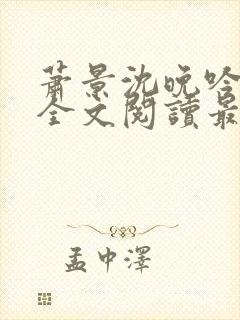 蕭景沈晚吟
全文閱讀最
孟中澤